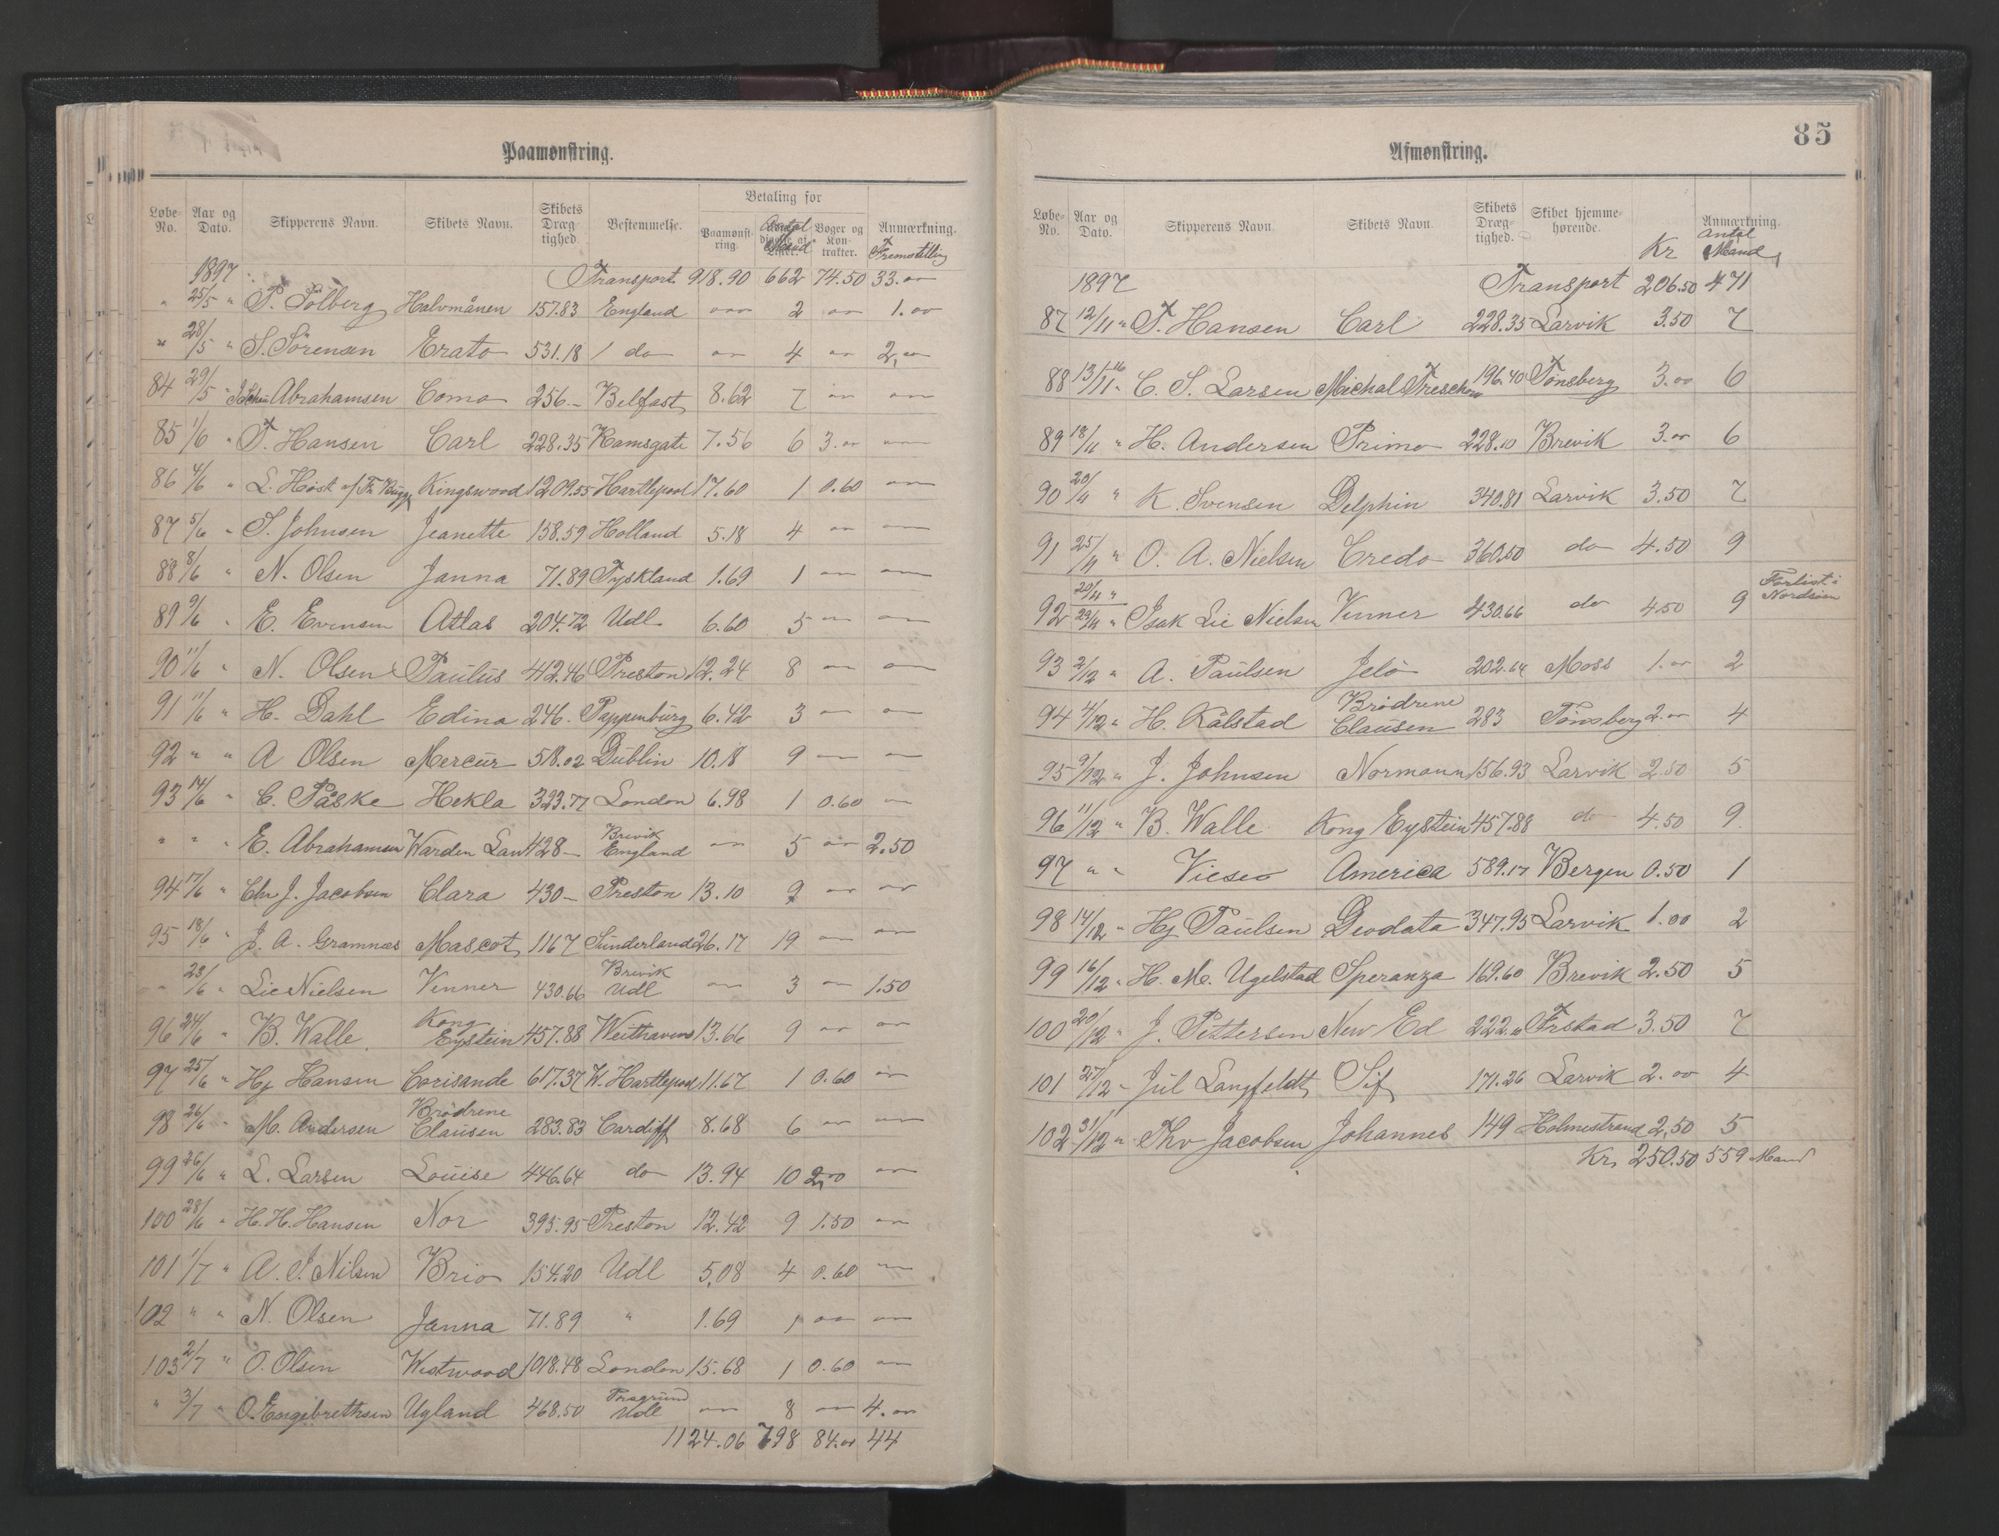 Paamønstring.
Løbe-No. Aar og Dato. Skipperens Navn. Skibets Navn. Skibets Dræg-tighed. Bestemmelse. Betaling for Paamønst-ring. Antal Mand Bøger og Kon-trakter. Anmærkning. Fremstilling
1897 Transport 918.90 662 74.50 33.00
" 25/5 " P. Solberg Halvmånen 157.83 England — 2 — 1.00
" 28/5 " S. Sörensen Erato 531.18 do — 4 — 2,00
84 29/5 " Abrahamsen Como 256— Belfast 8.62 7 — —
85 1/6 " T. Hansen Carl 228.35 Ramsgate 7.56 6 3.00 —
86 4/6 " L. Høst Kingswood 1209.55 Hartlepool 17.60 1 0.60 —
87 5/6 " S. Johnsen Jeanette 158.59 Holland 5.18 4 — —
88 8/6 " N. Olsen Janna 71.89 Tyskland 1.69 1 — —
89 9/6 " E. Evensen Atlas 204.72 Udl. 6.60 5 — —
90 11/6 " N. Olsen Paulus 412.46 Preston 12.24 8 — —
91 11/6 " H. Dahl Edina 246. Pappenburg 6.42 3 — —
92 " " A Olsen Mercur 518.02 Dublin 10.18 9 — —
93 14/6 " C. Påske Hekla 323.77 London 6.98 1 0.60 —
" " " E. Abrahamsen Warden Law 428— Brevik England — 5 — 2.50
94 17/6 " Chr J. Jacobsen Clara 430— Preston 13.10 9 — —
95 18/6 " J. A. Gramnæs Mascot 1167 Sunderland 26.17 19 — —
" 23/6 " Lie Nielsen Vinner 430.66 Brevik Udl — 3 — 1.50
96 24/6 " B. Walle. Kong Eystein 457.88 13.66 9 — —
97 25/6 " Hj Hansen Corisande 617.37 W. Hartlepool 11.67 1 0.60 —
98 26/6 " M. Andersen Brödrene Clausen 283.83 Cardiff 8.68 6 — —
99 26/6 " L. Larsen Louise 446.64 do 13.94 10 2,00 —
100 28/6 " H. H. Hansen Nor 395.95 Preston 12.42 9 1.50 —
101 1/7 " A. J. Nilsen Brio 154.20 Udl 5,08 4 0.60 —
102 " " N. Olsen Janna 71.89 " 1.69 1 — —
103 2/7 " O. Olsen Westwood 1018.48 London 15.68 1 0.60 —
" 3/7 " O. Engebrethsen Ugland 468.50 Porsgrund Udl — 8 — 4.00
1124.06 798 84.00 44
85
Afmønstring.
Løbe-No. Aar og Dato. Skipperens Navn. Skibets Navn. Skibets Dræg-tighed. Skibet hjemme-hørende. Kr Anmærkning. Antal Mand
1897 Transport 206.50 471
87 12/11 " T. Hansen Carl 228.35 Larvik 3.50 7
88 13/11 " C. S. Larsen Michal Treschow 196.40 Tønsberg 3.00 6
89 18/11 " H. Andersen Primo 228.10 Brevik 3.00 6
90 20/11 " K. Svensen Delphin 340.81 Larvik 3.50 7
91 25/11 " O. A. Nielsen Credo 360.50 do 4.50 9
92 20/11 " 29/11 " Isak Lie Nielsen Vinner 430.66 do 4.50 9 Forlist i Nordsøen
93 2/12 " A. Paulsen Jelö 202.64 Moss 1.00 2
94 4/12 " H. Kålstad Brödrene Clausen 283 Tønsberg 2.00 4
95 9/12 " J. Johnsen Normann 156.93 Larvik 2.50 5
96 11/12 " B. Walle Kong Eystein 457.88 do 4.50 9.
97 " " America 589.17 Bergen 0.50 1
98 14/12 " Hj Paulsen Deodata 347.95 Larvik 1.00 2
99 16/12 " H. M. Ugelstad Speranza 169.60 Brevik 2.50 5
100 20/12 " J. Pettersen New Ed Frstad 3.50 7
101 27/12 " Jul Langfeldt Sif 171.26 Larvik 2.00 4
102 31/12 " Thv Jacobsen Johannes 149 Holmestrand 2,50 5
Kr. 250.50 559 Mand